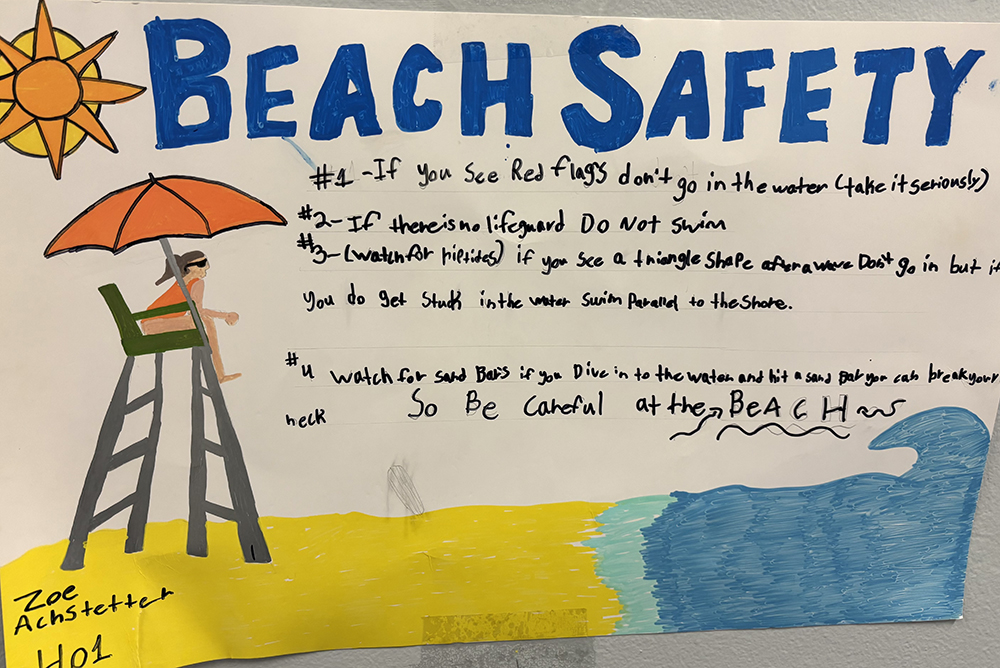 BEACH SAFETY
#1 - If you see Red flags don't go in the water (take it seriously)
#2 - If there is no lifeguard Do Not swim
#3 - (watch for riptides) if you see a triangle shape after a wave Don't go in but if
you do get stuck in the water swim Parallel to the shore.
#4 watch for sand Bars if you Dive in to the water and hit a sand Bar you can break your
neck
So Be Careful at the BEACH
Zoe
Achstetter
H01